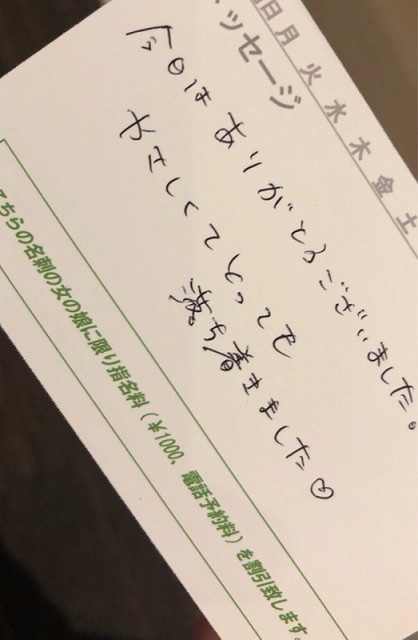 日月火水木金土
メッセージ
今日は ありがとうございました。
やさしくてとっても
落ち着きました♡
こちらの名刺の女の娘に限り指名料(¥1000、電話予約料)を割引致します。